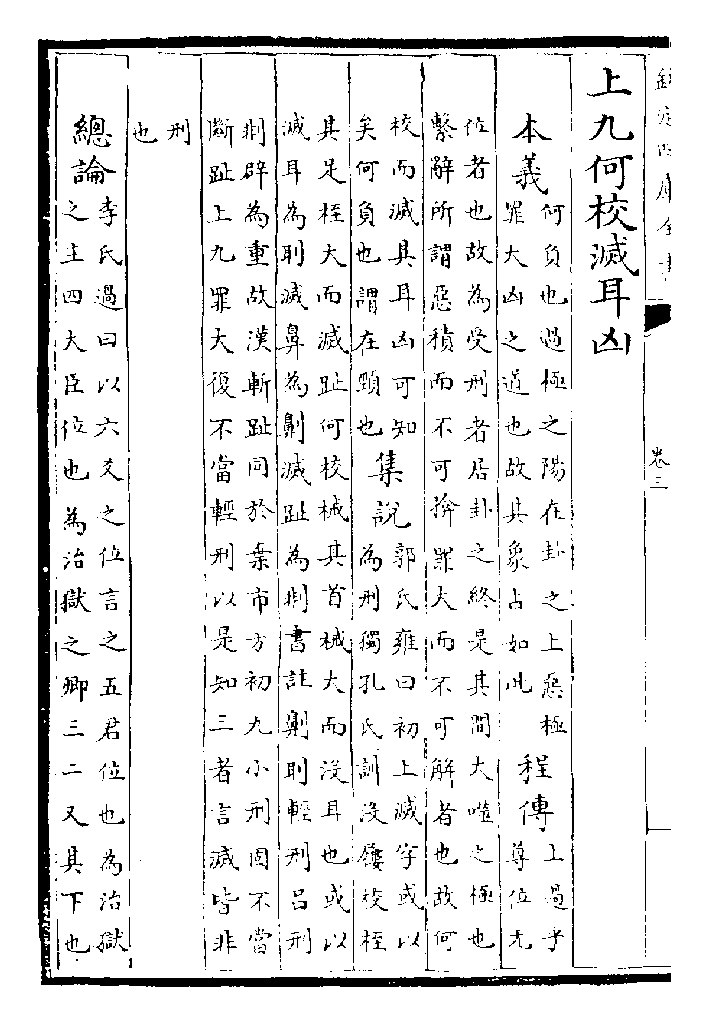 欽定四庫全書
卷三
上九何校滅耳凶
本義何負也過極之陽在卦之上惡極
罪大凶之道也故其象占如此程傳上過乎
尊位无
位者也故為受刑者居卦之終是其間大噬之極也
繫辭所謂惡積而不可揜罪大而不可解者也故何
校而滅其耳凶可知
矣何負也謂在頸也集說郭氏雍曰初上滅字或以
為刑獨孔氏訓沒屨校桎
其足桎大而滅趾何校械其首械大而沒耳也或以
滅耳為刵滅鼻為劓滅趾為剕書註劓刵輕刑呂刑
剕辟為重故漢斬趾同於棄市方初九小刑固不當
斷趾上九罪大復不當輕刑以是知三者言滅皆非
刑
也
總論李氏過曰以六爻之位言之五君位也為治獄
之主四大臣位也為治獄之卿三二又其下也